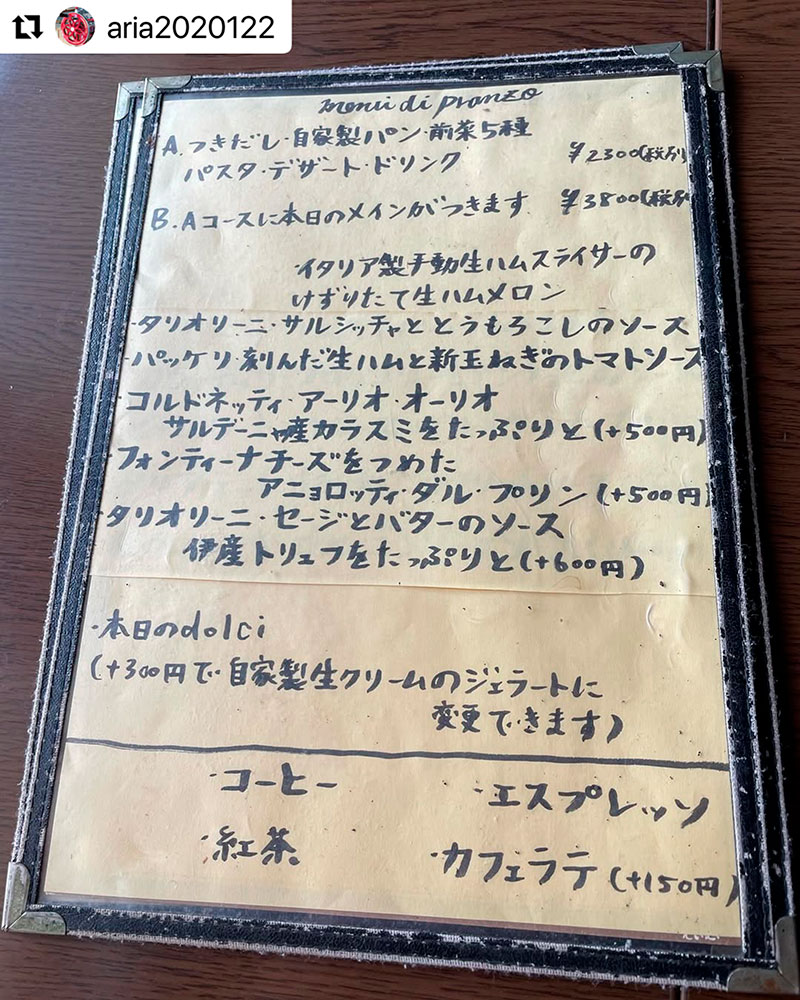 aria2020122
menu di pranzo
A. つきだし・自家製パン・前菜5種
パスタ・デザート・ドリンク ¥2300(税別)
B. Aコースに本日のメインがつきます ¥3800(税別
・イタリア製手動生ハムスライサーの
けずりたて生ハムメロン
・タリオリーニ・サルシッチャととうもろこしのソース
・パッケリ・刻んだ生ハムと新玉ねぎのトマトソース
・コルドネッティ・アーリオ・オーリオ
サルデーニャ産カラスミをたっぷりと(+500円)
・フォンティーナチーズをつめた
アニョロッティ・ダル・プリン(+500円)
・タリオリーニ・セージとバターのソース
伊産トリュフをたっぷりと(+600円)
・本日のdolci
(+300円で自家製生クリームのジェラートに
変更できます)
・コーヒー ・エスプレッソ
・紅茶 ・カフェラテ(+150円)